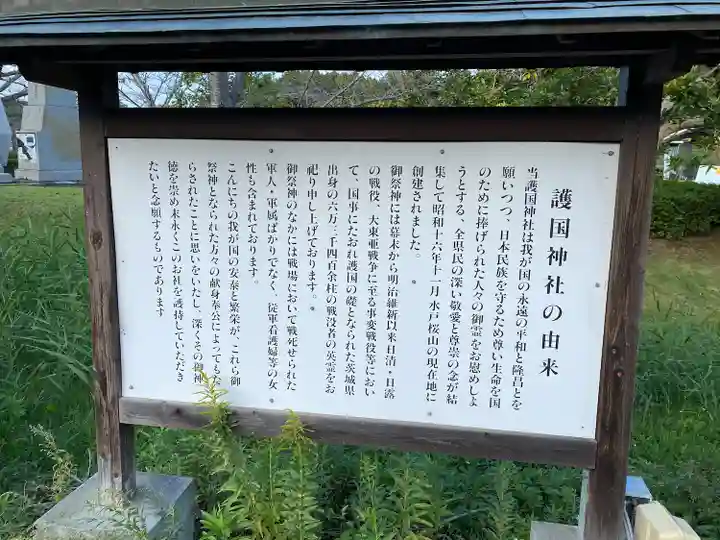 護国神社の由来
当護国神社は我が国の永遠の平和と隆昌とを
願いつつ、日本民族を守るため尊い生命を国
のために捧げられた人々の御霊をお慰めしよ
うとする、全県民の深い敬愛と尊崇の念が結
集して昭和十六年十一月水戸桜山の現在地に
創建されました。
御祭神には幕末から明治維新以来日清・日露
の戦役、大東亜戦争に至る事変戦役等におい
て、国事にたおれ護国の礎となられた茨城県
出身の六万三千四百余柱の戦没者の英霊をお
祀り申し上げております。
御祭神のなかには戦場において戦死せられた
軍人・軍属ばかりでなく、従軍看護婦等の女
性も含まれております。
こんにちの我が国の安泰と繁栄が、これら御
祭神となられた方々の献身奉公によってもた
らされたことに思いをいたし、深くその御神
徳を崇め末永くこのお社を護持していただき
たいと念願するものであります